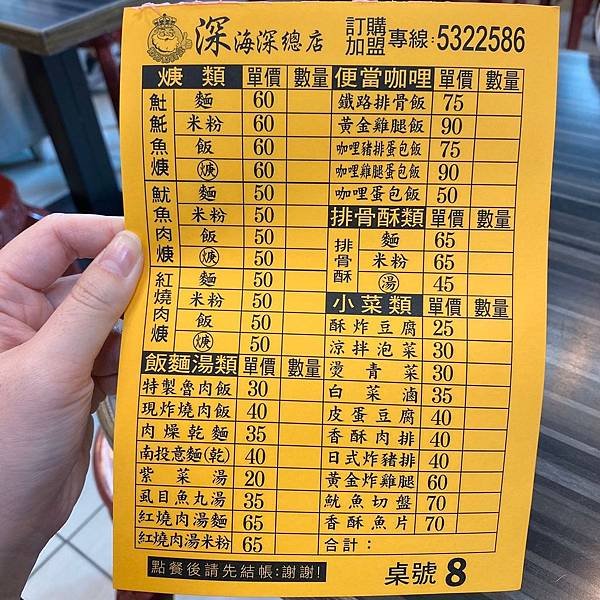 深海深總店 訂購加盟專線:5322586
焿類 單價 數量
魠魠魚焿
麵 60
米粉 60
飯 60
焿 60
魷魚肉焿
麵 50
米粉 50
飯 50
焿 50
紅燒肉焿
麵 50
米粉 50
飯 50
焿 50
飯麵湯類 單價 數量
特製魯肉飯 30
現炸燒肉飯 40
肉燥乾麵 35
南投意麵(乾) 40
紫菜湯 20
虱目魚丸湯 35
紅燒肉湯麵 65
紅燒肉湯米粉 65
點餐後請先結帳:謝謝!
便當咖哩 單價 數量
鐵路排骨飯 75
黃金雞腿飯 90
咖哩豬排蛋包飯 75
咖哩雞腿蛋包飯 90
咖哩蛋包飯 50
排骨酥類 單價 數量
排骨酥
麵 65
米粉 65
湯 45
小菜類 單價 數量
酥炸豆腐 25
涼拌泡菜 30
燙青菜 30
白菜滷 35
皮蛋豆腐 40
香酥肉排 40
日式炸豬排 40
黃金炸雞腿 60
魷魚切盤 70
香酥魚片 70
合計:
桌號 8